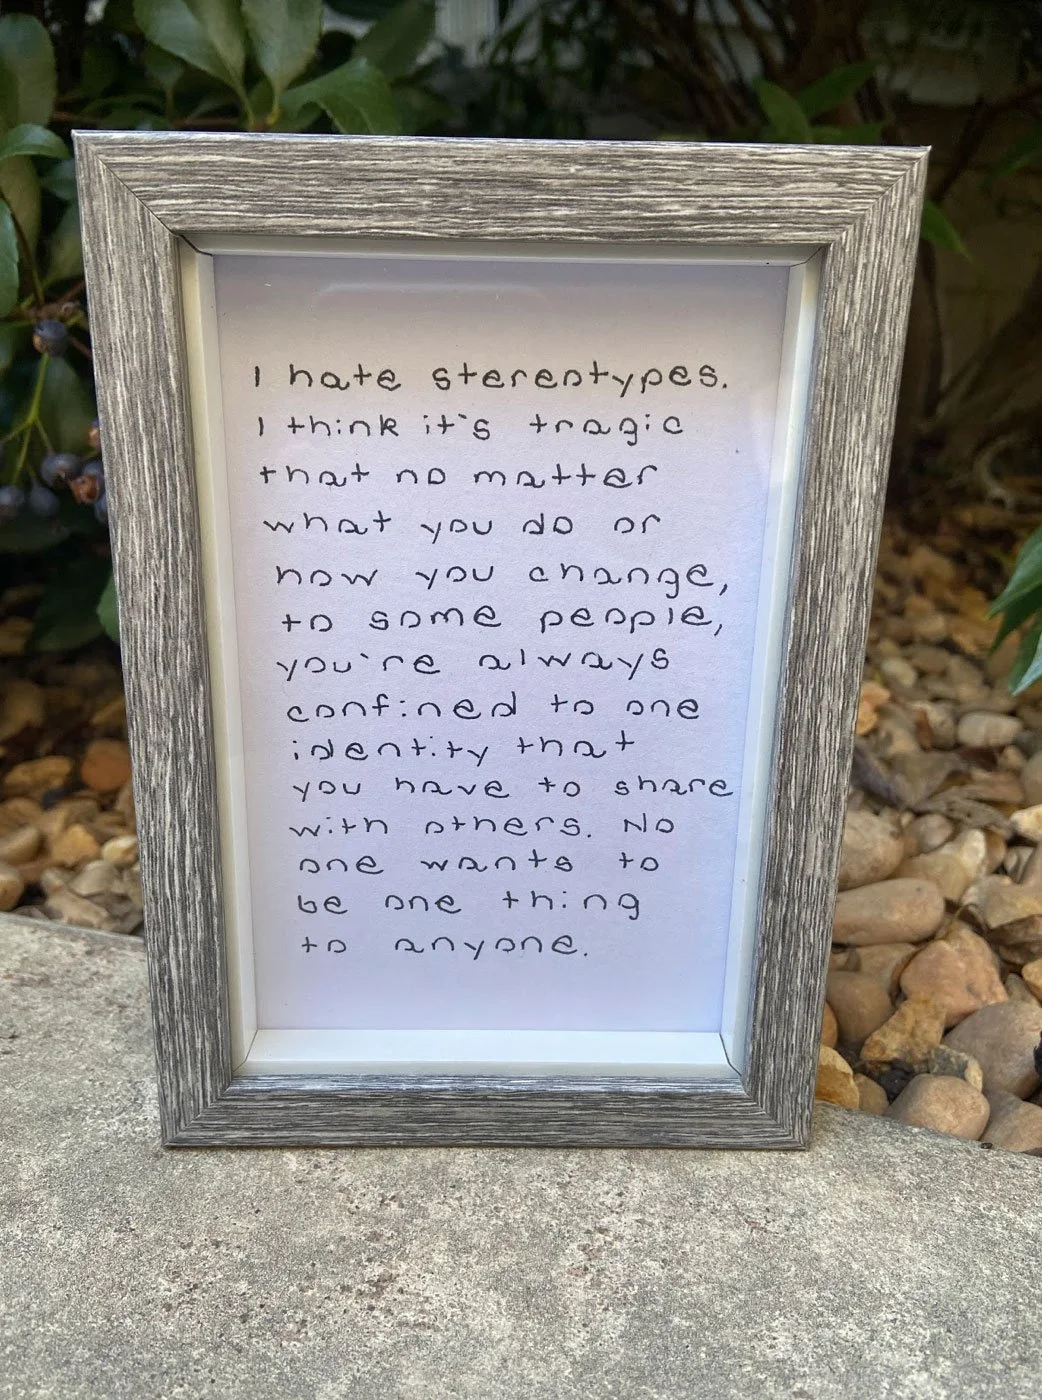 I hate stereotypes.
I think it's tragic
that no matter
what you do or
how you change,
to some people,
you're always
confined to one
identity that
you have to share
with others. No
one wants to
be one thing
to anyone.